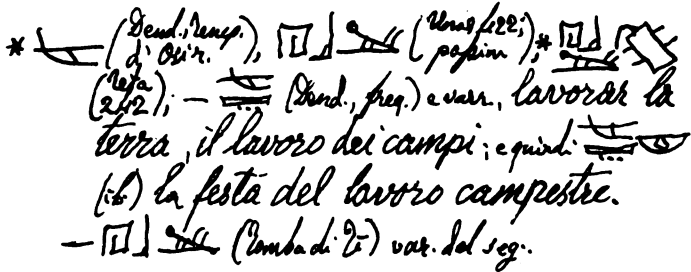 * (Dend., Temp. di Osir.), 𓉔𓃀𓍁 (Unas 422; passim), * 𓉔𓃀𓍁
(Teta 242); — (Dend., freq.) e varr., lavorar la
terra, il lavoro dei campi; e quindi
(ib.) la festa del lavoro campestre.
— 𓉔𓃀𓍁 (Tomba di Ti) var. del seg.